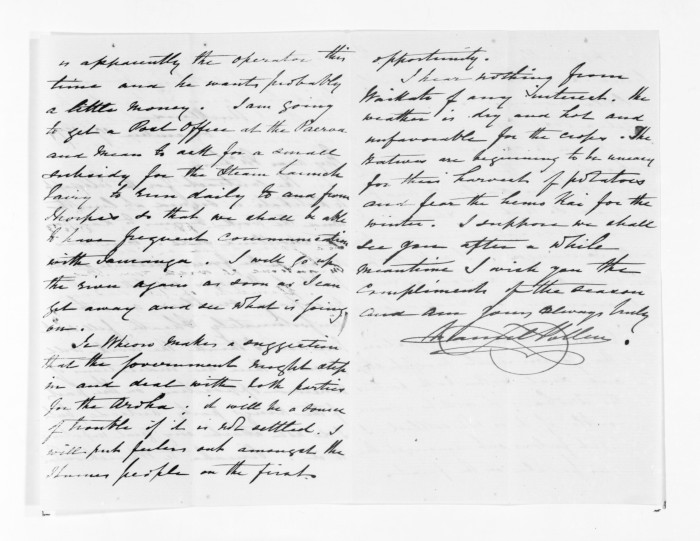 is apparently the operator this
time and he wants probably
a little money. I am going
to get a Post Office at the Paeroa
and mean to ask for a small
subsidy for the Steam Launch
Fairy to run daily to and from
Thorpes so that we shall be able
to have frequent communication
with Tauranga. I will go up
the river again as soon as I can
get away and see what is going
on.
Te Wheoro makes a suggestion
that the Government might step
in and deal with both parties
for the Aroha; it will be a source
of trouble if it is not settled. I
will put feelers out amongst the
Thames people on the first
opportunity.
I hear nothing from
Waikato of any interest. The
weather is dry and hot and
unfavorable for the crops. The
Natives are beginning to be uneasy
for their harvests of potatoes
and fear the hema Kai for the
winter. I suppose we shall
see you after a while
meantime I wish you the
Compliments of the season
and am Yours always truly
Daniel Pollen.